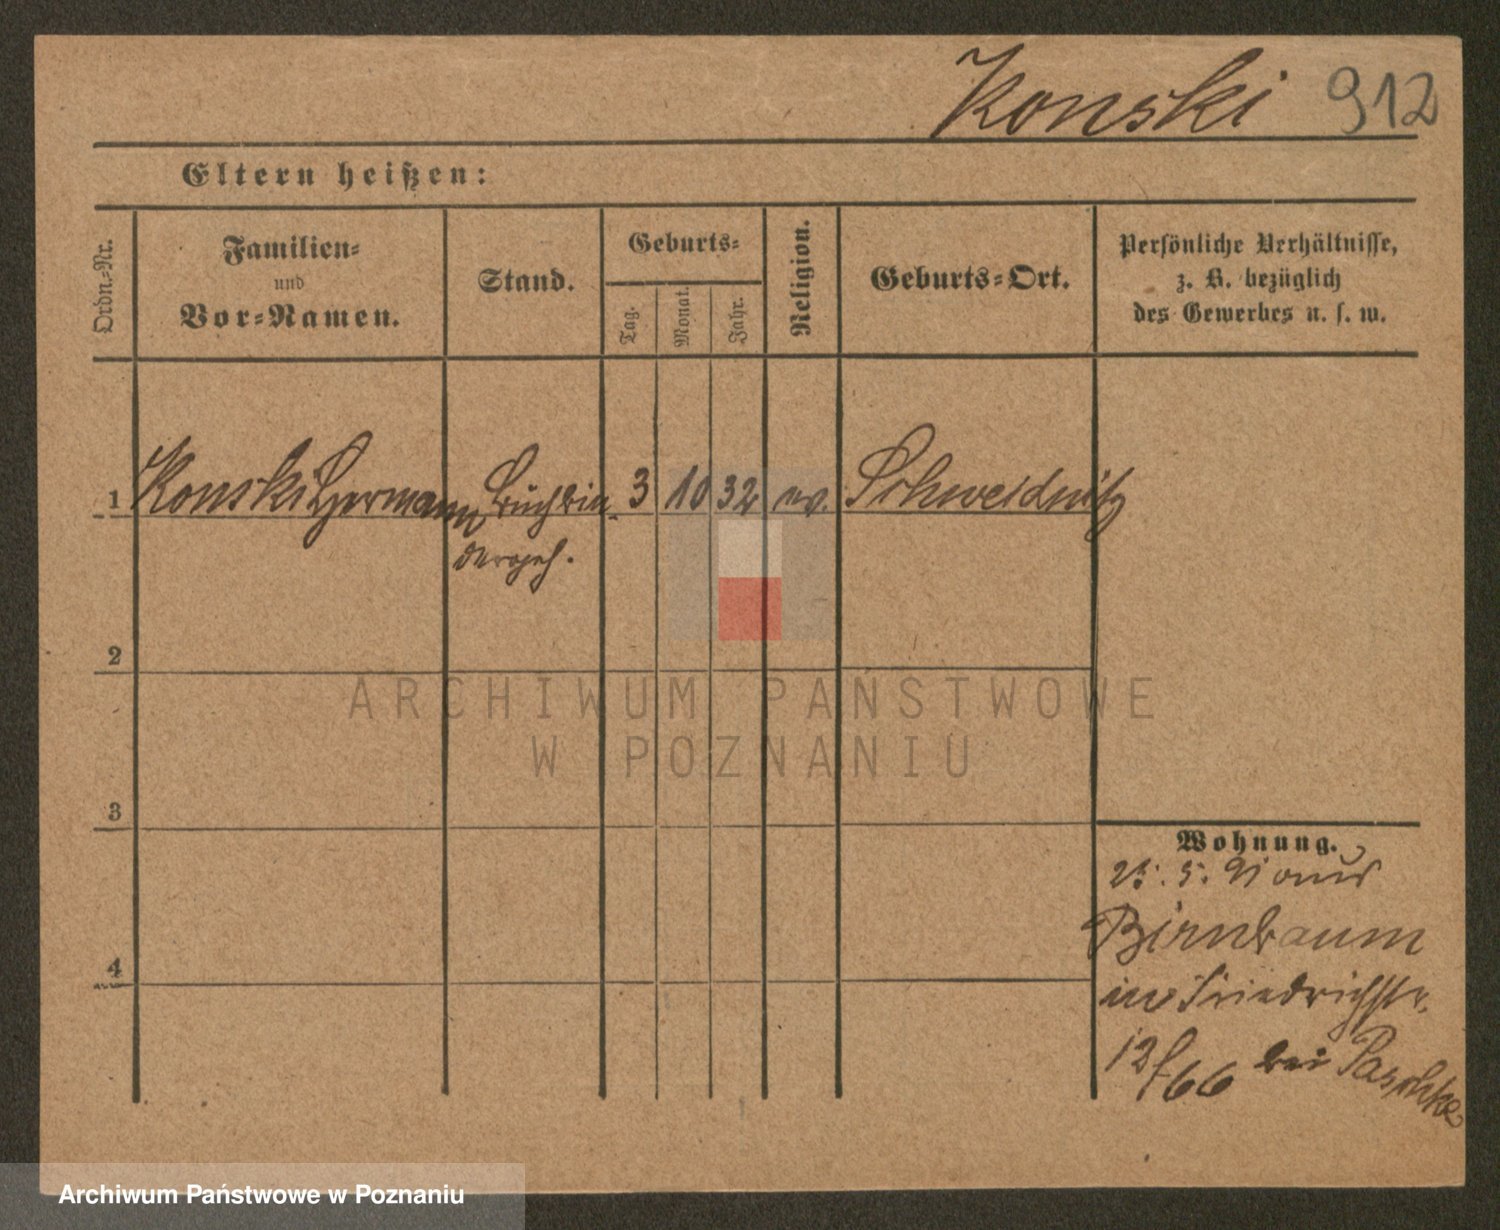 Konski 912
Eltern heißen:
Ordn.-Nr.
Familien-
und
Vor-Namen.
Stand.
Geburts-
Tag.
Monat.
Jahr.
Religion.
Geburts-Ort.
Persönliche Verhältnisse,
z. B. bezüglich
des Gewerbes u. s. w.
1 Konski Hermann Buchbin- 3 10 32 ev. Schweidnitz
dergeh.
2
3
4
Wohnung.
25. 5. 91 aus
Birnbaum
in Friedrichstr.
12/66 bei Paschke
ARCHIWUM PAŃSTWOWE
W POZNANIU
Archiwum Państwowe w Poznaniu